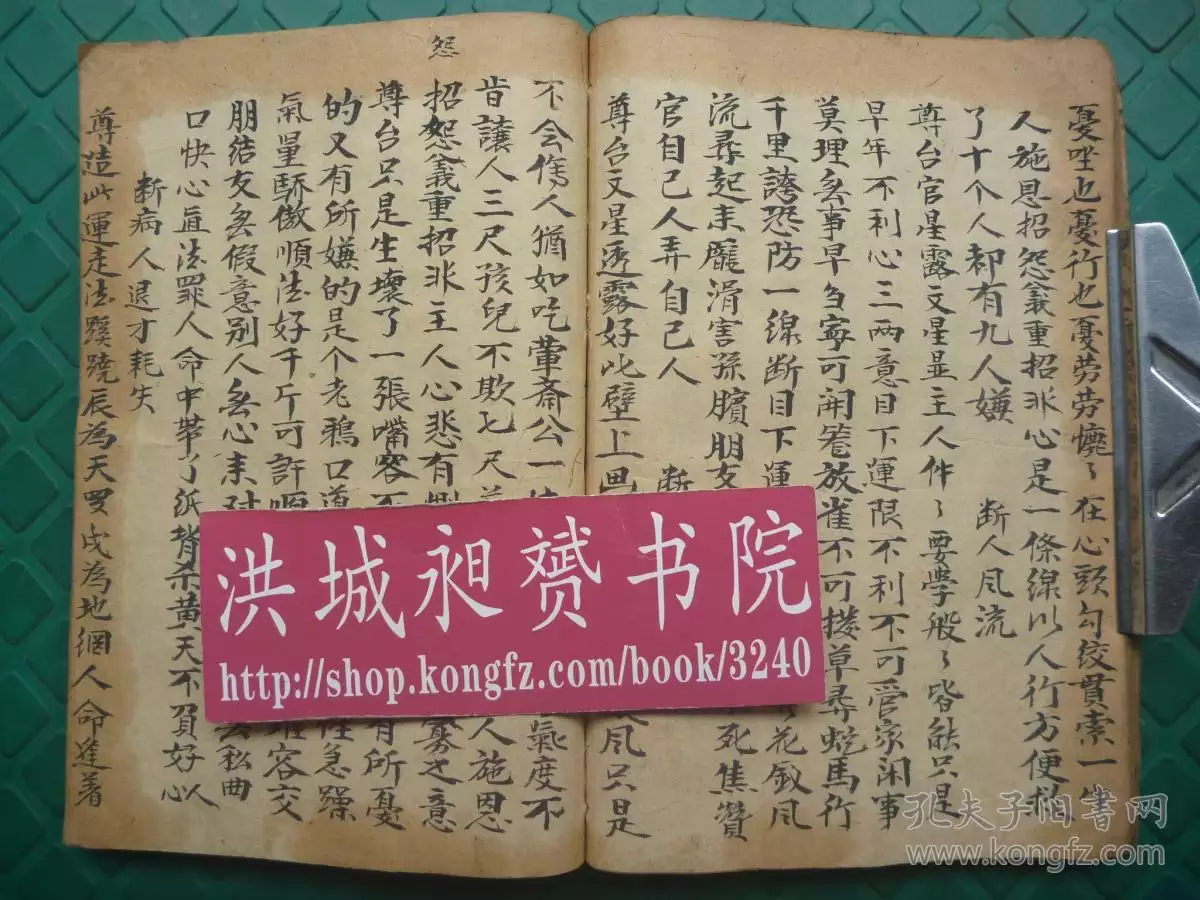 憂坐也憂行也憂劳劳懷々在心頭勾绞貫索一生
人施恩招怨義重招非心是一條線以人行方便救
了十个人却有九人嫌
断人风流
尊台官星露文星显主人件々要學般々皆能只是
早年不利心三两意目下運限不利不可管家闲事
莫理多事早刍寧可開篭放雀不可搂草尋蛇馬行
千里誇恐防一線断目下運
花戗风
流尋起来龐涓害孫臏朋友
死焦贊
官自己人弄自己人
断
尊台文星透露好比壁上畫
风只是
不会㑺人猶如吃葷斋公一
氣度不
肯讓人三尺孩兒不欺七尺
人施恩
招怨義重招非主人心悲有惻
寡之意
尊台只是生壞了一張嘴客不
有所憂
的又有所嫌的是个老鴉口
性急躁
氣量驕傲順法好千斤可許
容交
朋結友無假意别人無心来对
去私曲
口快心直法罪人命中帶了纸背杀黄天不負好心人
断病人退才耗失
尊造此運走法蹊蹺辰為天罗戌為地網人命逢著
怨
洪城昶赟书院
http://shop.kongfz.com/book/3240
孔夫子旧書网
www.kongfz.com